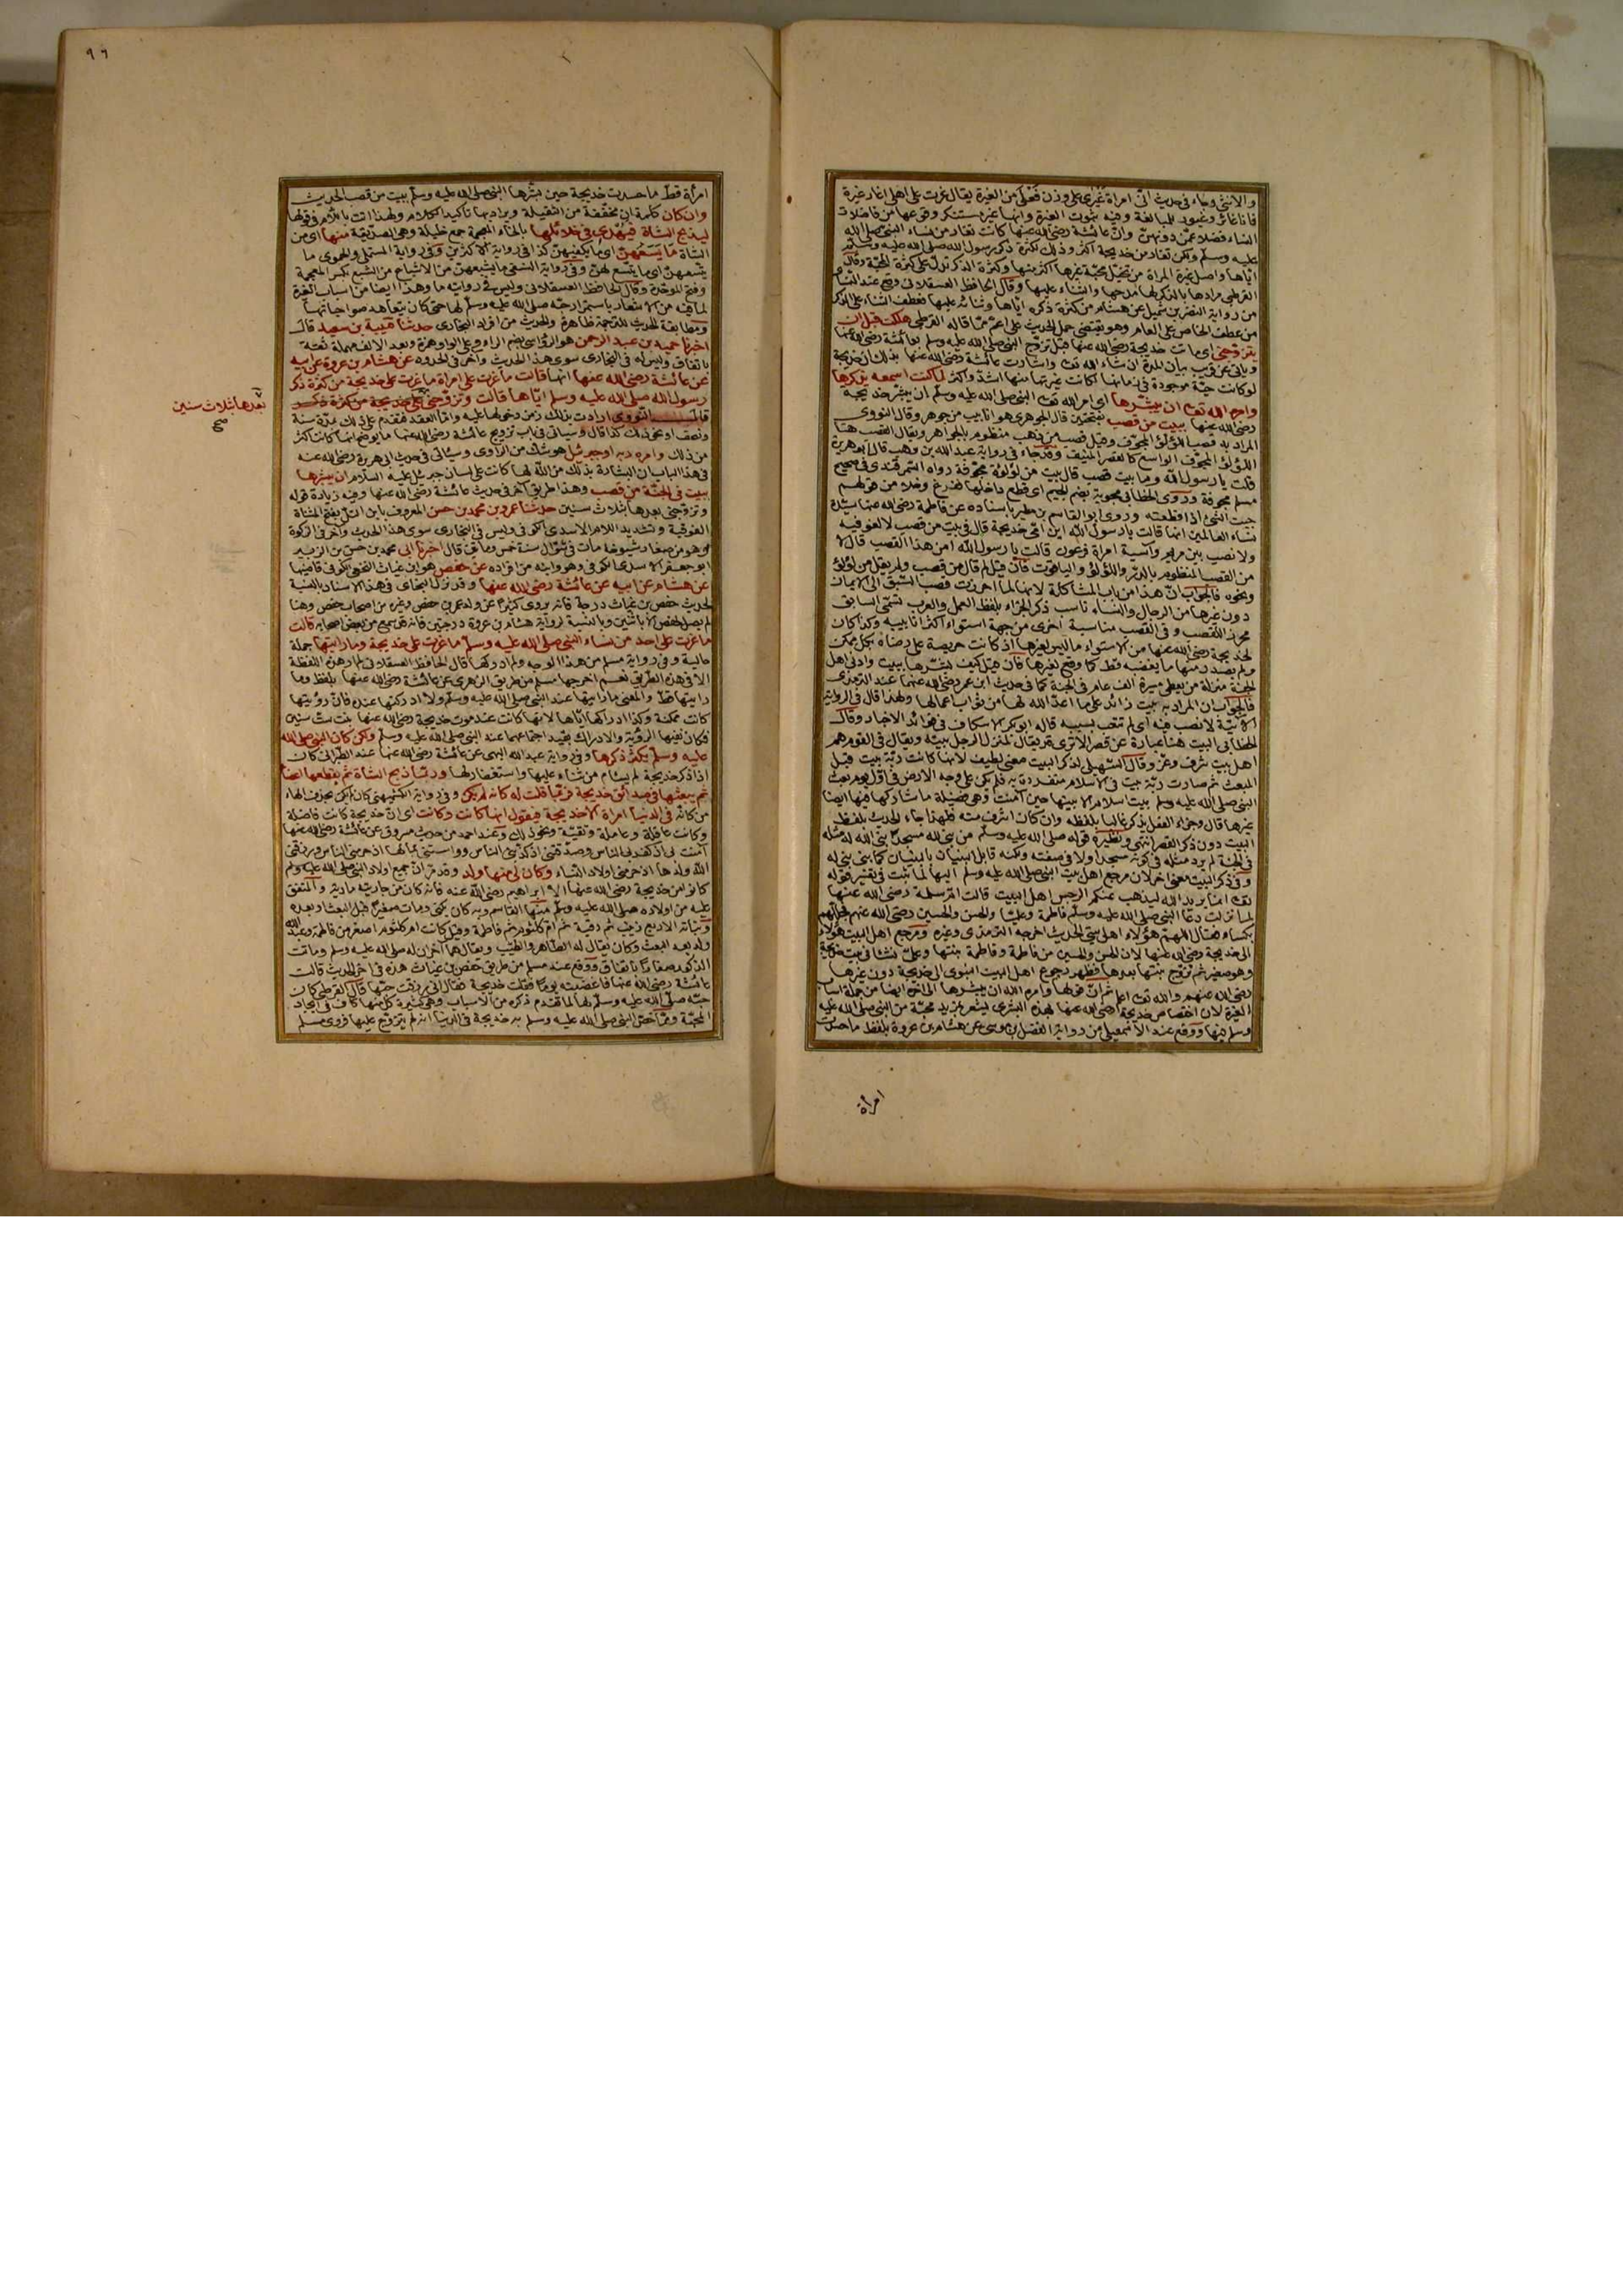 والانثى وجاء في حديث انّ امرأة غَيْرى على وزن فَعْلى من الغيرة يقال غرت على اهلي اغار غيرة
فانا غائر وغيور للمبالغة وفيه ثبوت الغيرة وانها غير مستنكر وقوعها من فاضلات
النساء فضلا عمّن دونهنّ وانّ عائشة رضي الله عنها كانت تغار من نساء النبي صلى الله
عليه وسلم ولكن تغار من خديجة اكثر وذلك لكثرة ذكر رسول الله صلى الله عليه وسلم
ايّاها واصل غيرة المرأة من تخيّل محبّة غيرها اكثر منها وكثرة الذكر تدلّ على كثرة المحبّة وقال
القرطبي مرادها بالذكر لها مدحها والثناء عليها وقال الحافظ العسقلاني وقع عند النسائي
من رواية النضر بن شميل عن هشام من كثرة ذكره ايّاها وثنائه عليها فعطف الثناء على الذكر
من عطف الخاص على العام وهو يقتضي حمل الحديث على اعمّ ممّا قاله القرطبي هلكت قبل ان
يتزوّجني اي ماتت خديجة رضي الله عنها قبل تزوّج النبي صلى الله عليه وسلم بعائشة رضي الله عنها
ويأتي عن قريب بيان المدة ان شاء الله تعالى واشارت عائشة رضي الله عنها بذلك ان خديجة
لو كانت حيّة موجودة في زمانها لكانت غيرتها منها اشدّ واكثر لما كنت اسمعه يذكرها
وامره الله تعالى ان يبشّرها اي امر الله تعالى النبي صلى الله عليه وسلم ان يبشّر خديجة
رضي الله عنها ببيت من قصب بفتحتين قال الجوهري هو انابيب من جوهر وقال النووي
المراد به قصب اللؤلؤ المجوّف وقيل قصب من ذهب منظوم بالجواهر ويقال القصب هنا
اللؤلؤ المجوّف الواسع كالقصر المنيف وقد جاء في رواية عبد الله بن وهب قال ابو هريرة
قلت يا رسول الله وما بيت قصب قال بيت من لؤلؤة مجوّفة رواه السمرقندي في صحيح
مسلم مجوفة وروى الخطابي مجوبة بضم الجيم اي قطع داخلها فتفرغ وخلا من قولهم
جبت الشيء اذا قطعته وروى ابو القاسم بن مطير باسناده عن فاطمة رضي الله عنها سيّدة
نساء العالمين انها قالت يا رسول الله اين امّي خديجة قال في بيت من قصب لا لغو فيه
ولا نصب بين مريم وآسية امرأة فرعون قالت يا رسول الله أمن هذا القصب قال لا
من القصب المنظوم بالدرّ واللؤلؤ والياقوت فان قيل لم قال من قصب ولم يقل من لؤلؤ
ونحوه فالجواب انّ هذا من باب المشاكلة لانها لما احرزت قصب السبق الى الايمان
دون غيرها من الرجال والنساء ناسب ذكر الجزاء بلفظ العمل والعرب تسمّي السابق
محرز القصب وفي القصب مناسبة اخرى من جهة استواء اكثر انابيبه وكذا كان
لخديجة رضي الله عنها من الاستواء ما ليس لغيرها اذ كانت حريصة على رضاه بكل ممكن
ولم يصدر منها ما يغضبه قط كما وقع لغيرها فان قيل كيف بشّرها ببيت وادنى اهل
الجنة منزلة من يعطى مسيرة الف عام في الجنة كما في حديث ابن عمر رضي الله عنهما عند الترمذي
فالجواب ان المراد به بيت زائد على ما اعدّ الله لها من ثواب اعمالها ولهذا قال في الرواية
الآتية لا نصب فيه اي لم تتعب بسببه قاله ابو بكر الاسكاف في فوائد الاخبار وقال
الخطابي البيت هنا عبارة عن قصر الا ترى قد يقال لمنزل الرجل بيته ويقال في القوم هم
اهل بيت شرف وعزّ وقال السهيلي لذكر البيت معنى لطيف لانها كانت ربّة بيت قبل
المبعث ثم صارت ربّة بيت في الاسلام منفردة به فلم يكن على وجه الارض في اول يوم بعث
النبي صلى الله عليه وسلم بيت اسلام الا بيتها حين آمنت وهي فضيلة ما شاركها فيها ايضا
غيرها قال وجزاء الفعل يذكر غالبا بلفظه وان كان اشرف منه فلهذا جاء الحديث بلفظ
البيت دون ذكر القصر انتهى ونظيره قوله صلى الله عليه وسلم من بنى لله مسجدا بنى الله له مثله
في الجنة لم يرد مثله في كونه مسجدا ولا في صفته ولكنه قابل البنيان بالبنيان كما بنى بني له
وفي ذكر البيت معنى آخر لان مرجع اهل بيت النبي صلى الله عليه وسلم اليها لما ثبت في تفسير قوله
تعالى انما يريد الله ليذهب عنكم الرجس اهل البيت قالت ام سلمة رضي الله عنها
لما نزلت دعا النبي صلى الله عليه وسلم فاطمة وعليّا والحسن والحسين رضي الله عنهم فجلّلهم
بكساء فقال اللهمّ هؤلاء اهل بيتي الحديث اخرجه الترمذي وغيره ومرجع اهل البيت هؤلاء
الى خديجة رضي الله عنها لان الحسن والحسين من فاطمة وفاطمة بنتها وعليّ نشأ في بيت خديجة
وهو صغير ثم تزوّج بنتها بعدها فظهر رجوع اهل البيت النبوي الى خديجة دون غيرها
رضي الله عنهم والله تعالى اعلم ثم انّ قولها وامره الله ان يبشرها الى آخره ايضا من جملة اسباب
الغيرة لان اختصاص خديجة رضي الله عنها بهذه البشرى يشعر بمزيد محبّة من النبي صلى الله عليه
وسلم فيها ووقع عند الاسمعيلي من رواية الفضل بن موسى عن هشام بن عروة بلفظ ما حسدت
امرأة
٩٦
امرأة قطّ ما حسدت خديجة حين بشّرها النبي صلى الله عليه وسلم ببيت من قصب الحديث
وان كان كلمة ان مخفّفة من الثقيلة ويراد بها تأكيد الكلام ولهذا اتت باللام في قولها
ليذبح الشاة فيُهدي في خلائلها بالخاء المعجمة جمع خليلة وهي الصديقة منها اي من
الشاة ما يَسَعُهنّ اي ما يكفيهنّ كذا في رواية الاكثرين وفي رواية المستملي والحموي ما
يتّسعهنّ اي ما يتّسع لهنّ وفي رواية النسفي ما يشبعهنّ من الاشباع من الشبع بكسر المعجمة
وفتح الموحّدة وقال الحافظ العسقلاني وليس في روايته ما وهذا ايضا من اسباب الغيرة
لما فيه من الاشعار باستمرار حبّه صلى الله عليه وسلم لها حتى كان يتعاهد صواحباتها
ومطابقة الحديث للترجمة ظاهرة والحديث من افراد البخاري حدثنا قتيبة بن سعيد قال
اخبرنا حميد بن عبد الرحمن هو الرؤاسي بضم الراء وعلى الواو همزة وبعد الالف مهملة ثقة
باتفاق وليس له في البخاري سوى هذا الحديث وآخر في الحدود عن هشام بن عروة عن ابيه
عن عائشة رضي الله عنها انها قالت ما غرت على امرأة ما غرت على خديجة من كثرة ذكر
رسول الله صلى الله عليه وسلم ايّاها قالت وتزوّجني على خديجة من كثرة ذكر
قال النووي ارادت بذلك زمن دخولها عليه وامّا العقد فتقدم على ذلك بمدّة سنة
ونصف او نحو ذلك كذا قال وسيأتي في باب تزويج عائشة رضي الله عنها ما يوضح انها كانت اكثر
من ذلك وامره ربه او جبرئيل هو شك من الراوي وسيأتي في حديث ابي هريرة رضي الله عنه
في هذا الباب ان البشارة بذلك من الله لها كانت على لسان جبرئيل عليه السلام ان يبشرها
ببيت في الجنّة من قصب وهذا طريق آخر في حديث عائشة رضي الله عنها وفيه زيادة قوله
وتزوّجني بعدها بثلاث سنين حدثنا عمر بن محمد بن حسن المعروف بابن التلّ بفتح المثناة
الفوقية وتشديد اللام الاسدي الكوفي وليس في البخاري سوى هذا الحديث وآخر في الزكوة
وهو من صغار شيوخه مات في شوّال سنة خمس ومائتين قال اخبرنا ابي محمد بن حسن بن الزبير
ابو جعفر الاسدي الكوفي وهو وابنه من افراده عن حفص هو ابن غياث النخعي الكوفي قاضيها
عن هشام عن ابيه عن عائشة رضي الله عنها وقد نزل البخاري في هذا الاسناد بالنسبة
لحديث حفص بن غياث درجة فانه يروي كثيرا عن ولده عمر بن حفص وغيره من اصحاب حفص وهنا
لم يصل لحفص الا باثنين وبالنسبة لرواية هشام بن عروة درجتين فانه قد سمع من بعض اصحابه قالت
ما غرت على احد من نساء النبي صلى الله عليه وسلم ما غرت على خديجة وما رأيتها جملة
حالية وفي رواية مسلم من هذا الوجه ولم ادركها قال الحافظ العسقلاني لم ار هذه اللفظة
الا في هذه الطريق نعم اخرجها مسلم من طريق الزهري عن عائشة رضي الله عنها بلفظ وما
رأيتها قطّ والمعنى ما رأيتها عند النبي صلى الله عليه وسلم ولا ادركتها عنده فانّ رؤيتها
كانت ممكنة وكذا ادراكها ايّاها لانها كانت عند موت خديجة رضي الله عنها بنت ستّ سنين
فكان نفيها الرؤية والادراك بقيد اجتماعهما عند النبي صلى الله عليه وسلم ولكن كان النبي صلى الله
عليه وسلم يكثر ذكرها وفي رواية عبد الله البهي عن عائشة رضي الله عنها عند الطبراني كان
اذا ذكر خديجة لم يسأم من ثناء عليها واستغفار لها وربّما ذبح الشاة ثم يقطعها اعضاء
ثم يبعثها في صدائق خديجة فربّما قلت له كانه لم يكن وفي رواية الكشميهني كان لم يكن بحذف الهاء
من كانه في الدنيا امرأة الا خديجة فيقول انها كانت وكانت اي انّ خديجة كانت فاضلة
وكانت عاقلة وعاملة وتقيّة ونحو ذلك وعند احمد من حديث مسروق عن عائشة رضي الله عنها
آمنت بي اذ كفر بي الناس وصدّقتني اذ كذّبني الناس وواستني بمالها اذ حرمني الناس ورزقني
الله ولدها اذ حرمني اولاد النساء وكان لي منها ولد وقد مرّ انّ جميع اولاد النبي صلى الله عليه وسلم
كانوا من خديجة رضي الله عنها الا ابراهيم رضي الله عنه فانه كان من جاريته مارية والمتفق
عليه من اولاده صلى الله عليه وسلم منها القاسم وبه كان يكنى ومات صغيرا قبل البعث او بعده
وبناته الاربع زينب ثم رقية ثم ام كلثوم ثم فاطمة وقيل كانت ام كلثوم اصغر من فاطمة وعبد الله
ولد بعد المبعث وكان يقال له الطاهر والطيّب ويقال هما آخران له صلى الله عليه وسلم وماتت
الذكور صغارا باتفاق ووقع عند مسلم من طريق حفص بن غياث هذه في آخر الحديث قالت
عائشة رضي الله عنها فاغضبته يوما فقلت خديجة فقال اني رزقت حبّها قال القرطبي كان
حبّه صلى الله عليه وسلم لها لما تقدم ذكره من الاسباب وهي كثيرة كل منها كاف في ايجاد
المحبّة وممّا اختصّ النبي صلى الله عليه وسلم به خديجة في الدنيا انه لم يتزوّج عليها فروى مسلم
بعدها بثلاث سنين
صح